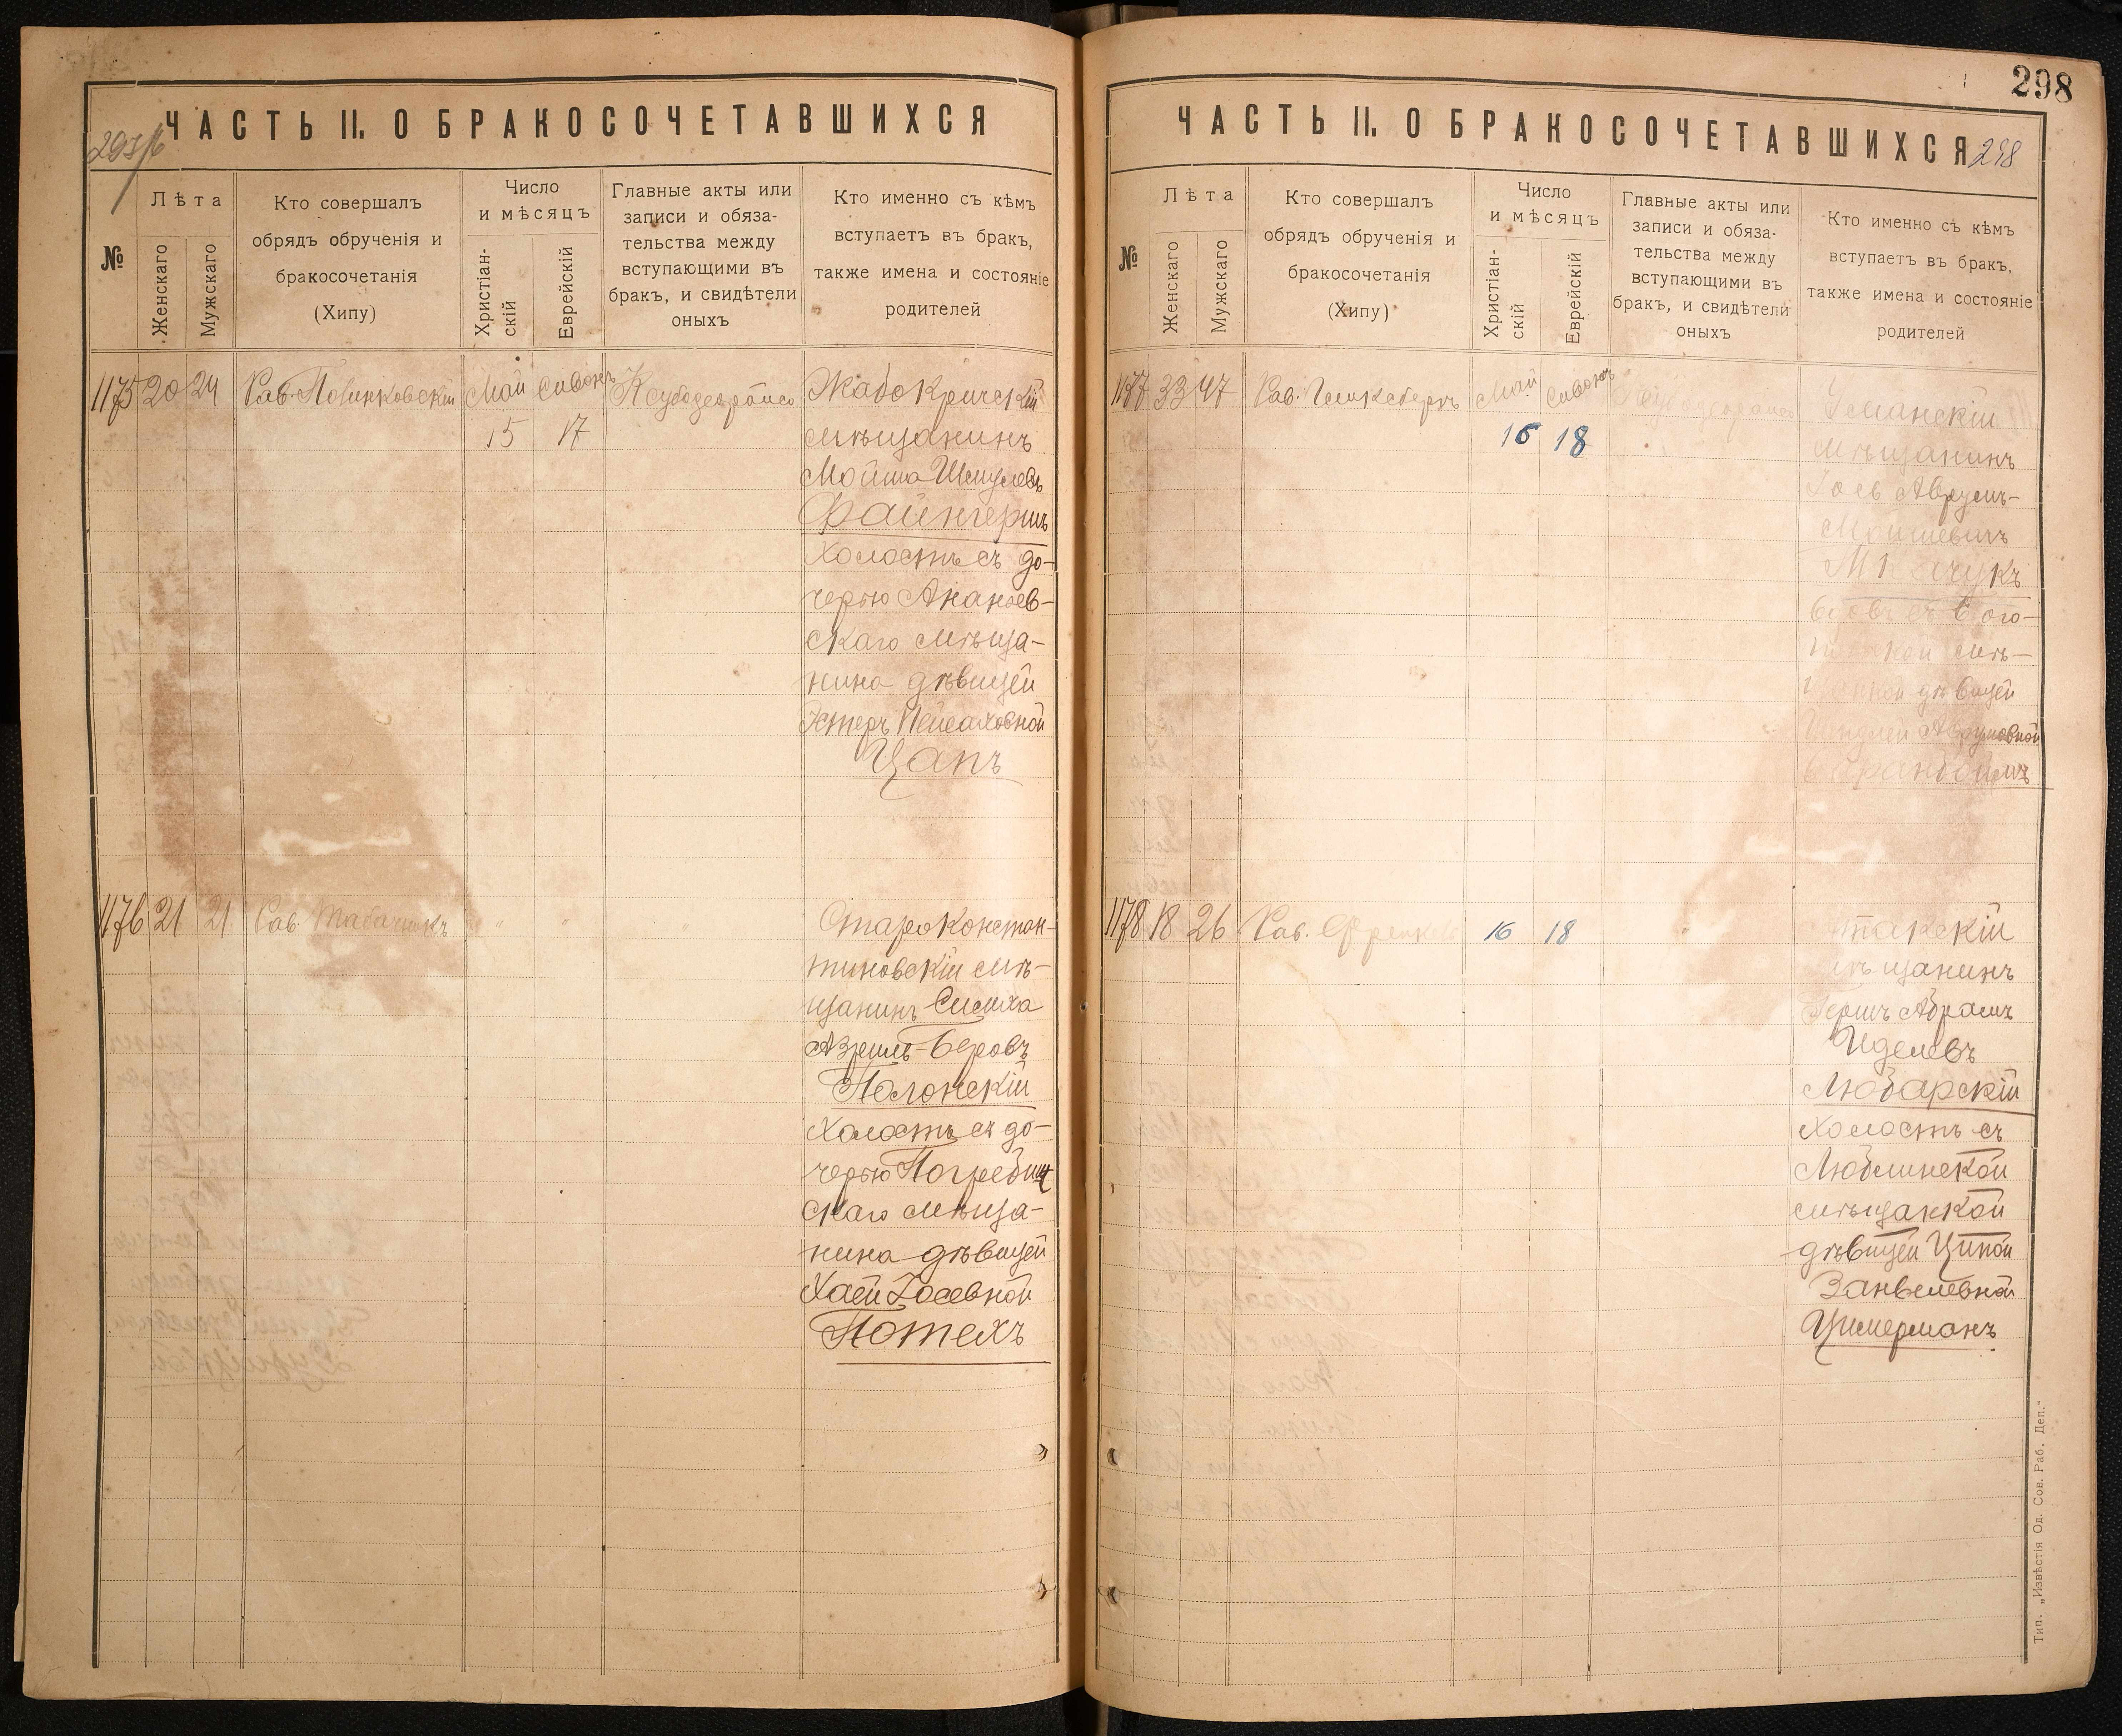 ЧАСТЬ II. О БРАКОСОЧЕТАВШИХСЯ
№
Лѣта
Женскаго
Мужскаго
Кто совершалъ
обрядъ обрученія и
бракосочетанія
(Хипу)
Число
и мѣсяцъ
Христіан-
скій
Еврейскій
Главные акты или
записи и обяза-
тельства между
вступающими въ
бракъ, и свидѣтели
оныхъ
Кто именно съ кѣмъ
вступаетъ въ бракъ,
также имена и состояніе
родителей
1175 20 24 Рав. Май Сивонъ
15 17
Жабокричскій
мѣщанинъ
Мойша Шмулевъ
Файнгершъ
холостъ съ до-
черью Ананьев-
скаго мѣща-
нина дѣвицей
Эстеръ Пейсаховной
Цапъ
1176 21 21 Рав. Табачникъ " " "
Староконстан-
тиновскій мѣ-
щанинъ Симха
Азриль-Беровъ
Полонскій
холостъ съ до-
черью Погребищ
скаго мѣща-
нина дѣвицей
Хаей Іосевной
Потехъ
298
ЧАСТЬ II. О БРАКОСОЧЕТАВШИХСЯ 298
№
Лѣта
Женскаго
Мужскаго
Кто совершалъ
обрядъ обрученія и
бракосочетанія
(Хипу)
Число
и мѣсяцъ
Христіан-
скій
Еврейскій
Главные акты или
записи и обяза-
тельства между
вступающими въ
бракъ, и свидѣтели
оныхъ
Кто именно съ кѣмъ
вступаетъ въ бракъ,
также имена и состояніе
родителей
1177 33 47 Рав. Май Сивонъ
16 18
Уманскій
мѣщанинъ
Аврумъ-
Мошковичъ
вдовъ съ
мѣ-
дѣвицей
Аврумовной
1178 18 26 Рав. Френкель 16 18
мѣщанинъ
Гершъ Абрамъ
Иделевъ
Любарскій
холостъ съ
Люблинской
мѣщанкой
дѣвицей Ципой
Занвелевной
Цимерманъ
Тип. „Извѣстія Од. Сов. Раб. Деп."